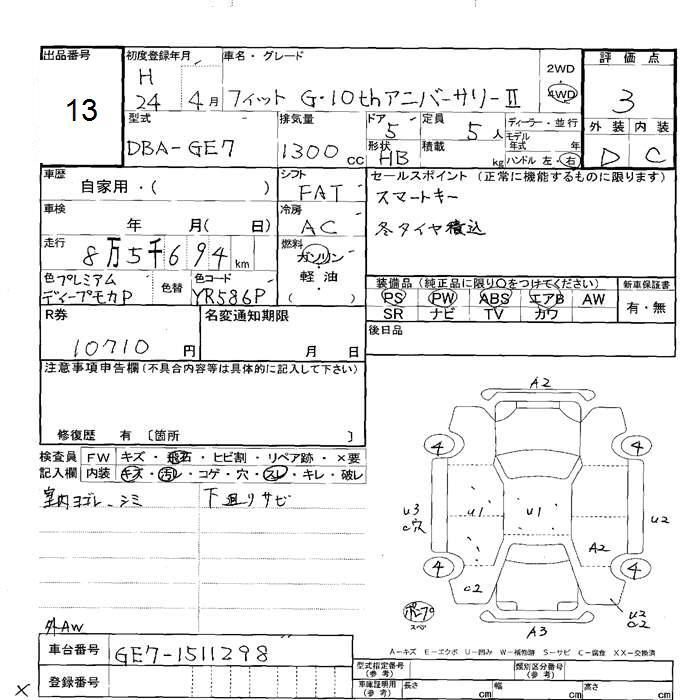 出品番号
13
初度登録年月
H
24 4月
車名・グレード
フィット G・10thアニバーサリーⅡ
2WD
4WD
評価点
3
外装 内装
D C
型式
DBA-GE7
排気量
1300cc
ドア
5
形状
HB
定員
5人
積載
kg
ディーラー・並行
モデル
年式 年
ハンドル 左・右
車歴
自家用・( )
シフト
FAT
セールスポイント (正常に機能するものに限ります)
スマートキー
冬タイヤ積込
車検
年 月( 日)
冷房
AC
走行
8万5千694km
燃料
ガソリン
軽油
・
( )
色 プレミアム
ディープモカP
色替
色コード
YR586P
装備品 (純正品に限り〇をつけてください)
PS PW ABS エアB AW
SR ナビ TV カワ
新車保証書
有・無
R券
10710円
名変通知期限
月 日
後日品
注意事項申告欄 (不具合内容等は具体的に記入して下さい)
修復歴 有 〔箇所 〕
検査員 FW キズ・飛石・ヒビ割・リペア跡・×要
記入欄 内装 キズ・汚れ・コゲ・穴・スレ・キレ・破レ
室内ヨゴレ、シミ 下廻りサビ
外AW
A2
4 4
U3
C穴
U1 U1
U2
A2
4 4
C2
U2
C2
ボーナP
スペア
A3
A-キズ E-エクボ U-凹み W-補修跡 S-サビ C-腐食 XX-交換済
車台番号
GE7-1511298
登録番号
×
型式指定番号
(参考)
類別区分番号
(参考)
車庫証明用
(参考)
長さ cm 幅 cm 高さ cm